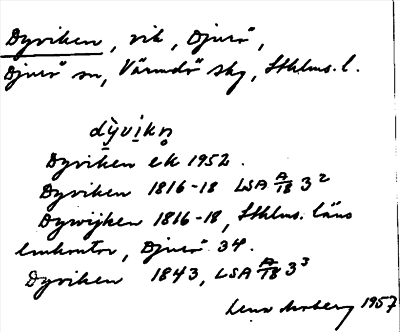 Dyviken, vik, Djurö,
Djurö sn, Värmdö skg, Sthlms. l.
dỳvikn̥
Dyviken ek 1952.
Dyviken 1816-18 LSA A/18 3²
Dywijken 1816-18, Sthlms. läns
lmkontor, Djurö 34.
Dyviken 1843, LSA A/18 3³
Lena Moberg 1957